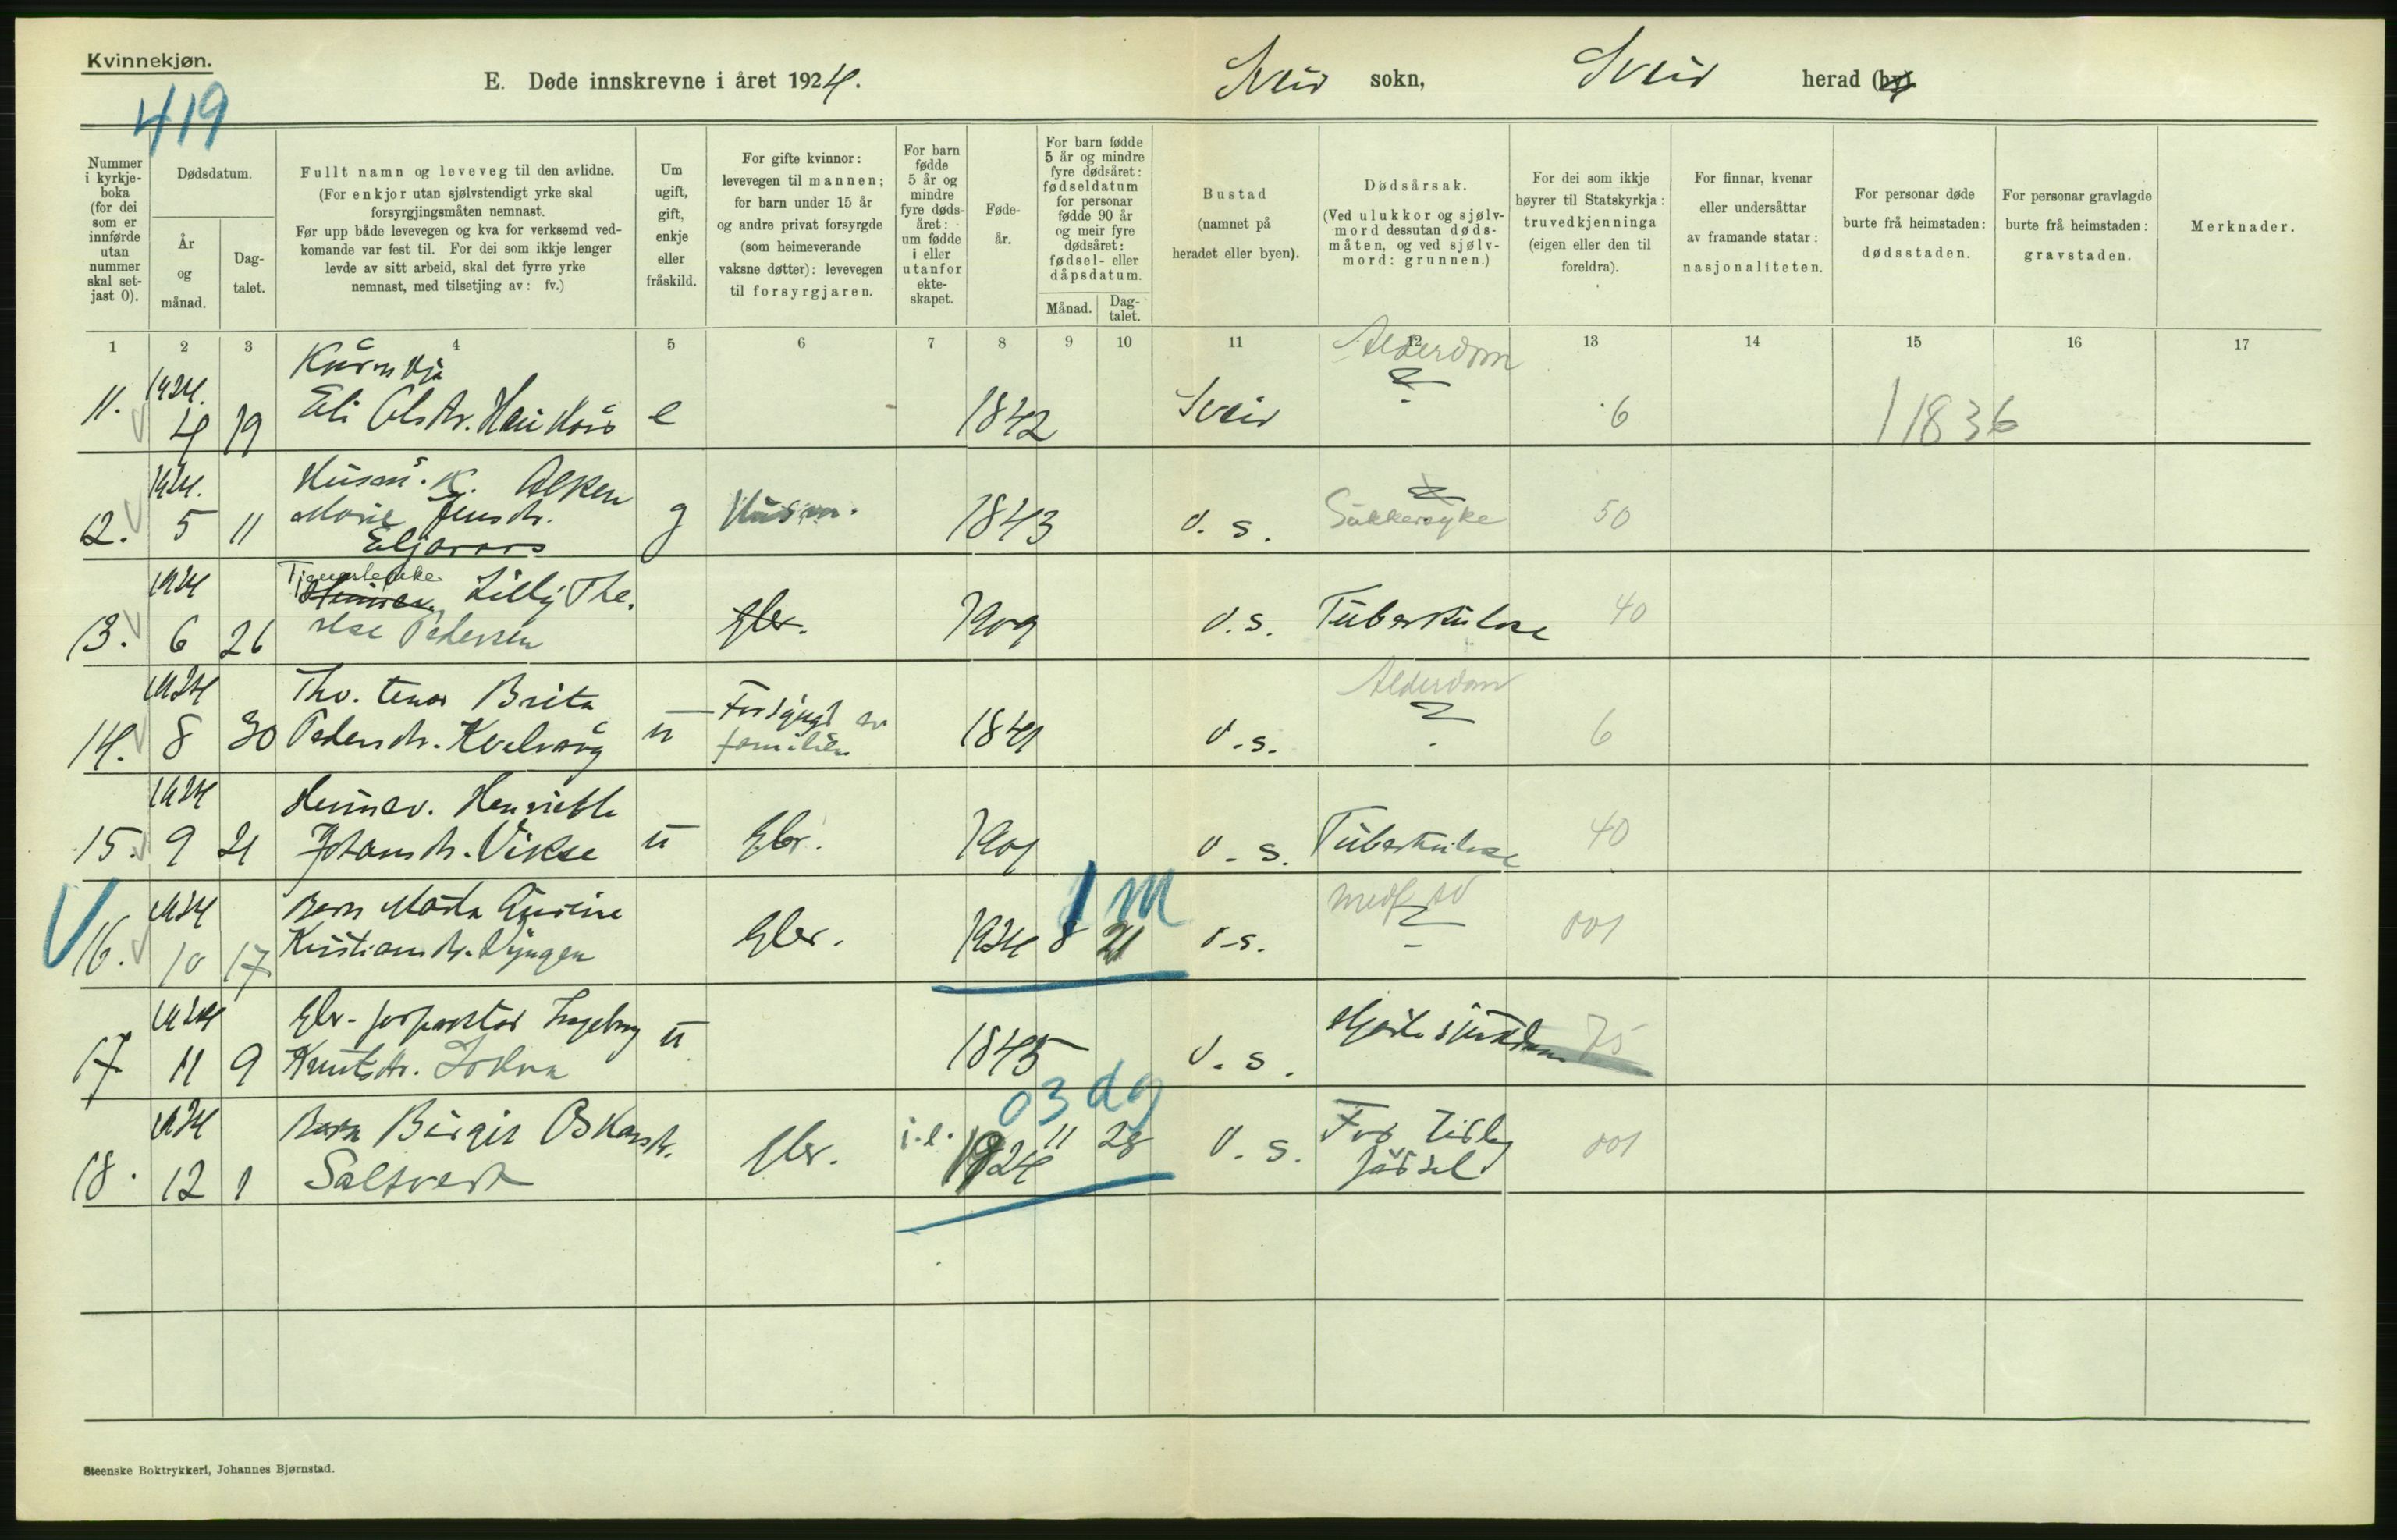 Kvinnekjøn.
419
E. Døde innskrevne i året 1924.
Sveio sokn, Sveio herad (by).
Nummer i kyrkje-boka (for dei som er innførde utan nummer skal set-jast 0).
Dødsdatum.
År og månad.
Dag-talet.
Fullt namn og leveveg til den avlidne.
(For enkjor utan sjølvstendigt yrke skal forsyrgjingsmåten nemnast.
Før upp både levevegen og kva for verksemd ved-komande var fest til. For dei som ikkje lenger levde av sitt arbeid, skal det fyrre yrke nemnast, med tilsetjing av: fv.)
Um ugift, gift, enkje eller fråskild.
For gifte kvinnor: levevegen til mannen; for barn under 15 år og andre privat forsyrgde (som heimeverande vaksne døtter): levevegen til forsyrgjaren.
For barn fødde 5 år og mindre fyre døds-året: um fødde i eller utanfor ekte-skapet.
Føde-år.
For barn fødde 5 år og mindre fyre dødsåret: fødseldatum for personar fødde 90 år og meir fyre dødsåret: fødsel- eller dåpsdatum.
Månad.
Dag-talet.
Bustad (namnet på heradet eller byen).
Dødsårsak.
(Ved ulukkor og sjølv-mord dessutan døds-måten, og ved sjølv-mord: grunnen.)
For dei som ikkje høyrer til Statskyrkja: truvedkjenninga (eigen eller den til foreldra).
For finnar, kvenar eller undersåttar av framande statar: nasjonaliteten.
For personar døde burte frå heimstaden: dødsstaden.
For personar gravlagde burte frå heimstaden: gravstaden.
Merknader.
1 2 3 4 5 6 7 8 9 10 11 12 13 14 15 16 17
11. 1924. 4 19 Eli Olsdtr. e 1842 Sveio Alderdom ? 6 11836
12. 1924. 5 11 Husm. k. Marie Jensdtr. g Husm. 1843 d. s. Sukkersyke 50
13. 1924 6 26 Tjenestejente Lilly The-rese Pedersen gbr. 1909 d. s. Tuberkulose 40
14. 1924 8 30 Brita Pedersdtr. Kvalvåg u Forsyrgt av familien 1841 d. s. Alderdom ? 6
15. 1924 9 21 Heimev. Henriette Johansdtr. Vikse u gbr. 1901 d. s. Tuberkulose 40
16. 1924 10 17 Barn Marta Kristiansdtr. gbr. 1924 8 21 1 m d. s. medf. ? 001
17 1924 11 9 Ingeborg Knutsdtr. u 1845 d. s. Hjertesjukdom 75
18. 1924 12 1 Barn Birgit Oskarsdtr. gbr. i.e. 1924 11 28 03 dg d. s. For tidleg fødsel 001
Steenske Boktrykkeri, Johannes Bjørnstad.